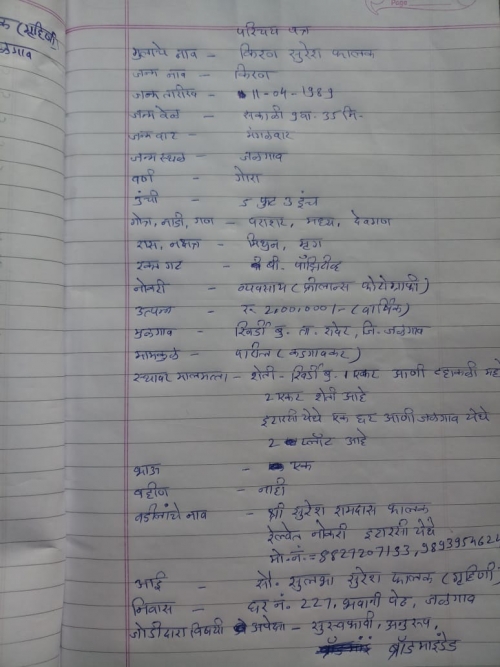 परिचय पत्र
मुलाचे नाव - किरण सुरेश फालक
जन्म नाव - किरण
जन्म तारीख - 11-04-1989
जन्म वेळ - सकाळी 9वा. 35 मि.
जन्म वार - मंगळवार
जन्म स्थळ - जळगाव
वर्ण - गोरा
उंची - 5 फुट 3 इंच
गोत्र, नाडी, गण - पराशर, मध्य, देवगण
रास, नक्षत्र - मिथुन, मृग
रक्त गट - बी. पॉझिटीव्ह
नोकरी - व्यवसाय (फ्रीलान्स फोटोग्राफी)
उत्पन्न - रु. 2,00,000/- (वार्षिक)
मुळगाव - खिर्डी बु. ता. रावेर, जि. जळगाव
मामकुळे - पाटील (कडगावकर)
स्थावर मालमत्ता - शेती - खिर्डी बु. 1 एकर आणी
2 एकर शेती आहे
इटारसी येथे एक घर आणी जळगाव येथे
2 प्लॉट आहे
भाऊ - एक
बहीण - नाही
वडीलांचे नाव - श्री सुरेश रामदास फालक
रेल्वेत नोकरी इटारसी येथे
मो. नं. = 8827207193, 9893954624
आई - सौ. सुलभा सुरेश फालक (गृहिणी)
निवास - घर नं. 227, भवानी पेठ, जळगाव
जोडीदारा विषयी अपेक्षा - सुस्वभावी, अनुरूप,
ब्रॉडमाइंडेड
(गृहिणी)
जळगाव
Page